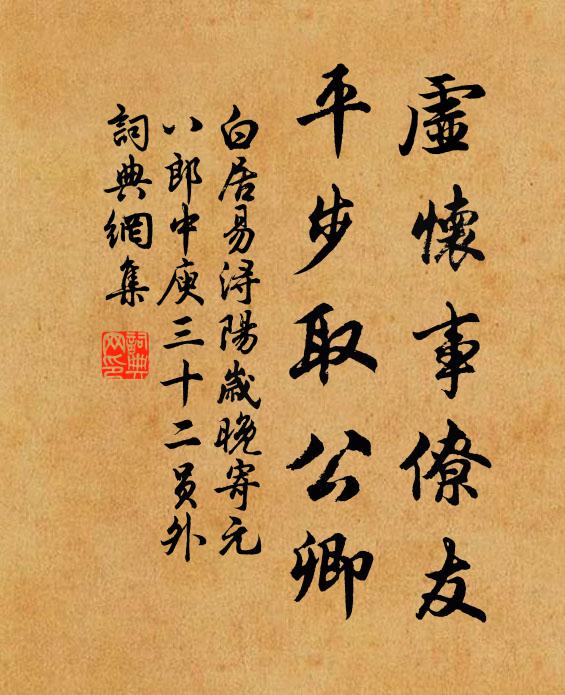 虛懷事僚友
平步取公卿
白居易潯陽歲晚寄元
八郎中庾三十二員外
詞典網集
詞典網印